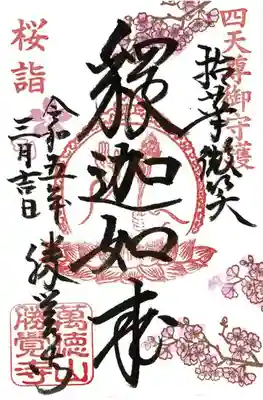 四天尊御守護
拈華微笑
釋迦如来
桜詣
令和五年
三月吉日
勝覚寺
萬徳山
勝覚寺